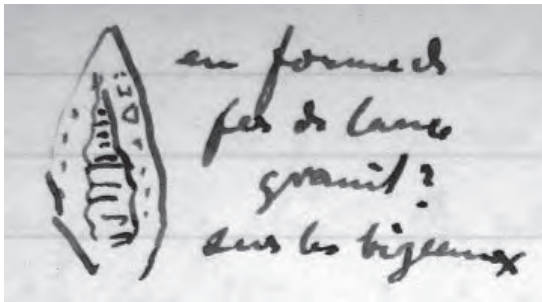 en forme de
fer de lance
granit?
sur les bijeaux